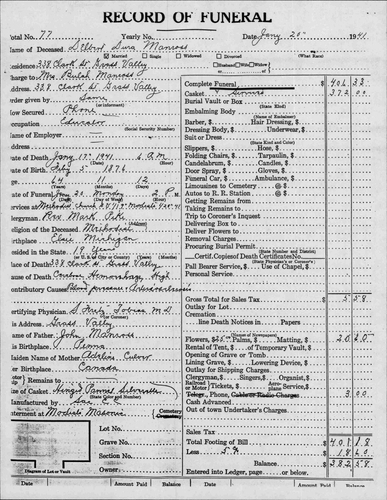 RECORD OF FUNERAL
Total No. 77 Yearly No. Date Jany 20 1941
Name of Deceased Manross
Married Single Widowed Divorced (What Race)
Residence 338 Clark St Grass Valley Husband Wife Widow
Charge to Mrs Bulah Manross
Address 338 Clark St Grass Valley
Order given by Same
(or informant)
How Secured Phone
Occupation
(Social Security Number)
Name of Employer
Address
Date of Death Jany 17 1941 P.M.
(Hour)
Date of Birth Feby 5 1876
64 11 12
(Years) (Months) (Days)
Date of Funeral Jan 20 Monday 2 P.M.
(Date) (Day) (Hour)
Services at Methodist Church
Clergyman Rev. Mark
Religion of the Deceased Methodist
Birthplace Michigan
Resided in the State 19 Years
Place of Death 338 Clark St Grass Valley
Cause of Death
Contributory Causes
Certifying Physician S Fritz Tobias M D
His Address Grass Valley
Name of Father John Manross
His Birthplace Penna
Maiden Name of Mother Culver
Her Birthplace Canada
Motor Remains to
Size of Casket
(State Color and Number)
Manufactured by
Interment at Masonic Cemetery
Lot No.
Grave No.
Section No.
Block No.
Owner
Diagram of Lot or Vault
Complete Funeral $ 404 33
Casket 372 00
Burial Vault or Box
(State Kind)
Embalming Body
(Name of Embalmer)
Barber, $ Hair Dressing, $
Dressing Body, $ Underwear, $
Suit or Dress
(State Kind and Color)
Slippers, $ Hose, $
Folding Chairs, $ Tarpaulin, $
Candelabrum, $ Candles, $
Door Spray, $ Gloves, $
Funeral Car, $ Ambulance, $
Limousines to Cemetery @ $
Autos to R. R. Station @ $
Getting Remains from
Taking Remains to
Trip to Coroner's Inquest
Delivering Box to
Deliver Flowers to
Removal Charges
Procuring Burial Permit
(State Number and District)
Certif. Copies of Death Certificates No.
(State Physician's or Coroner's)
Pall Bearer Service, $ Use of Chapel, $
Personal Service
Gross Total for Sales Tax $ 5 58
Outlay for Lot
Cremation
line Death Notices in Papers
(Names of Newspapers)
Flowers, $ Palms, $ Matting, $ 20 60
Rental of Tent, $ of Temporary Vault, $
Opening of Grave or Tomb
Lining Grave, $ Lowering Device, $
Outlay for Shipping Charges
Clergyman, $ Singers, $ Organist, $
Railroad or Motor Tickets, $ Aero. Service, $
Telegr., Phone, Cable or Radio Charges 3 00
Cash Advanced
Out of town Undertaker's Charges
Sales Tax
Total Footing of Bill $
Less 5 % 18 60
Balance $ 382 58
Entered into Ledger, page or below.
Date Amount Paid Balance Date Amount Paid Balance